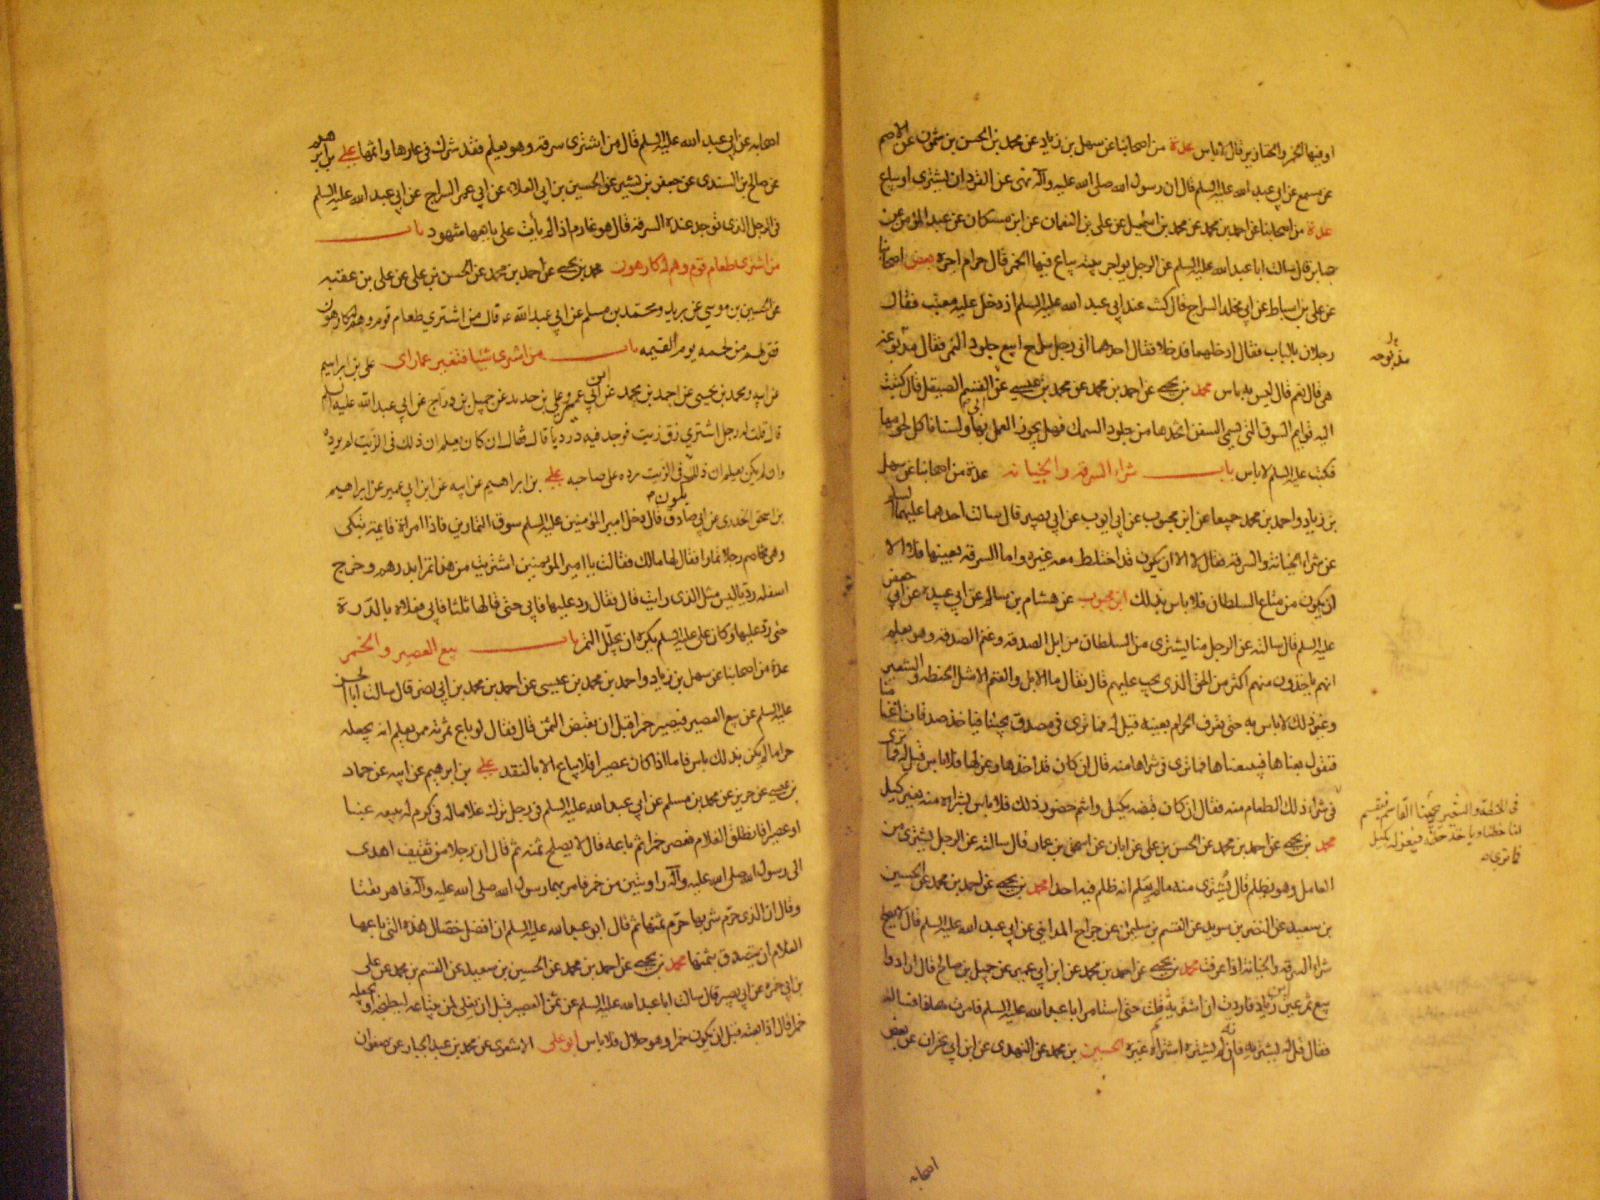 او فيها الخمر والخنازير قال لا باس عدة من اصحابنا عن سهل بن زياد عن محمد بن الحسن بن شمون عن الاصم
عن مسمع عن ابي عبد الله عليه السلم قال ان رسول الله صلى الله عليه وآله نهى عن القرد ان يشترى او يباع
عدة من اصحابنا عن احمد بن محمد عن محمد بن اسمعيل عن علي بن النعمان عن ابن مسكان عن عبد المؤمن عن
صابر قال سالت ابا عبد الله عليه السلم عن الرجل يواجر بيته يباع فيها الخمر قال حرام اجره بعض اصحابنا
عن علي بن اسباط عن ابي مخلد السراج قال كنت عند ابي عبد الله عليه السلم اذ دخل عليه معتب فقال
رجلان بالباب فقال ادخلهما فدخلا فقال احدهما اني رجل سراج ابيع جلود النمر فقال مدبوغة
هي قال نعم قال ليس به باس محمد بن يحيى عن احمد بن محمد عن محمد بن عيسى عن ابي القسم الصيقل قال كتبت
اليه قوايم السيوف التي تسمى السفن اتخذها من جلود السمك فهل يجوز العمل بها ولسنا ناكل لحومها
فكتب عليه السلم لا باس باب شراء السرقة والخيانة عدة من اصحابنا عن سهل
بن زياد واحمد بن محمد جميعا عن ابن محبوب عن ابي ايوب عن ابي بصير قال سالت احدهما عليهما السلم
عن شراء الخيانة والسرقة فقال لا الا ان يكون قد اختلط معه غيره واما السرقة بعينها فلا الا
ان يكون من متاع السلطان فلا باس بذلك ابن محبوب عن هشام بن سالم عن ابي عبيدة عن ابي جعفر
عليه السلم قال سالته عن الرجل منا يشترى من السلطان من ابل الصدقة وغنم الصدقة وهو يعلم
انهم ياخذون منهم اكثر من الحق الذي يجب عليهم قال فقال ما الابل والغنم الا مثل الحنطة والشعير
وغير ذلك لا باس به حتى يعرف الحرام بعينه قيل له فما ترى في مصدق يجيئنا فياخذ صدقات اغنامنا
فنقول بعناها فيبيعناها فما ترى في شراها منه قال ان كان قد اخذها وعزلها فلا باس قيل له فما ترى
في شراء ذلك الطعام منه فقال ان كان قبضه بكيل وانتم حضور ذلك فلا باس بشراه منه بغير كيل
محمد بن يحيى عن احمد بن محمد عن الحسن بن علي عن ابان عن اسحق بن عمار قال سالته عن الرجل يشترى من
العامل وهو يظلم قال يشترى منه ما لم يعلم انه ظلم فيه احدا محمد بن يحيى عن احمد بن محمد عن الحسين
بن سعيد عن النضر بن سويد عن القسم بن سليمان عن جراح المدايني عن ابي عبد الله عليه السلم قال لا يصلح
شراء السرقة والخيانة اذا عرفت محمد بن يحيى عن احمد بن محمد عن ابن ابي عمير عن جميل بن صالح قال ارادوا
بيع تمر عين ابن زياد فاردت ان اشتريه قلت حتى استامر ابا عبد الله عليه السلم فامرت مصادفا فساله
فقال قل له يشتريه فانه ان لم يشتره اشتراه غيره الحسين بن محمد عن النهدي عن ابن ابي نجران عن بعض
اصحابه
مدبوغة
في الحنطة والشعير يجيئنا القاسم فيقسم
لنا حظنا وياخذ حظه فيعزله بكيل
فما ترى
اصحابه عن ابي عبد الله عليه السلم قال من اشترى سرقة وهو يعلم فقد شرك في عارها واثمها علي بن ابرهيم
عن صالح بن السندي عن جعفر بن بشير عن الحسين بن ابي العلاء عن ابي عمر السراج عن ابي عبد الله عليه السلم
في الرجل الذي توجد عنده السرقة قال هو غارم اذا لم يات على بايعها شهود باب
من اشترى طعام قوم وهم له كارهون محمد بن يحيى عن احمد بن محمد عن الحسن بن علي عن علي بن عقبة
عن الحسين بن موسى عن بريد ومحمد بن مسلم عن ابي عبد الله ع قال من اشترى طعام قوم وهم له كارهون
قص لهم من لحمه يوم القيمة باب من اشترى شيئا فتغير عما راى علي بن ابراهيم
عن ابيه ومحمد بن يحيى عن احمد بن محمد عن ابن ابي عمير وعلي بن حديد عن جميل بن دراج عن ابي عبد الله عليه السلم
قال قلت له رجل اشترى زق زيت فوجد فيه درديا قال فقال ان كان يعلم ان ذلك في الزيت لم يرده
وان لم يكن يعلم ان ذلك يكون في الزيت رده على صاحبه علي بن ابراهيم عن ابيه عن ابن ابي عمير عن ابراهيم
بن اسحق الخدري عن ابي صادق قال دخل امير المؤمنين عليه السلم سوق التمارين فاذا امراة قايمة تبكي
وهي تخاصم رجلا تمارا فقال لها مالك فقالت يا امير المؤمنين اشتريت من هذا تمرا بدرهم وخرج
اسفله رديا ليس مثل الذي رايت قال فقال رد عليها فابى حتى قالها ثلثا فابى فعلاه بالدرة
حتى رد عليها وكان علي عليه السلم يكره ان يجلل التمر باب بيع العصير والخمر
عدة من اصحابنا عن سهل بن زياد واحمد بن محمد بن عيسى عن احمد بن محمد بن ابي نصر قال سالت ابا الحسن
عليه السلم عن بيع العصير فيصير خمرا قبل ان يقبض الثمن قال فقال لو باع ثمرته ممن يعلم انه يجعله
حراما لم يكن بذلك باس فاما اذا كان عصيرا فلا يباع الا بالنقد علي بن ابرهيم عن ابيه عن حماد
بن عيسى عن حريز عن محمد بن مسلم عن ابي عبد الله عليه السلم في رجل ترك غلاما له في كرم له يبيعه عنبا
او عصيرا فانطلق الغلام فعصر خمرا ثم باعه قال لا يصلح ثمنه ثم قال ان رجلا من ثقيف اهدى
الى رسول الله صلى الله عليه وآله راويتين من خمر فامر بهما رسول الله صلى الله عليه وآله فاهريقتا
وقال ان الذي حرم شربها حرم ثمنها ثم قال ابو عبد الله عليه السلم ان افضل خصال هذه التي باعها
الغلام ان يتصدق بثمنها محمد بن يحيى عن احمد بن محمد عن الحسين بن سعيد عن القسم بن محمد عن علي
بن ابي حمزة عن ابي بصير قال سالت ابا عبد الله عليه السلم عن ثمن العصير قبل ان يغلي لمن يبتاعه ليطبخه او يجعله
خمرا قال اذا بعته قبل ان يكون خمرا وهو حلال فلا باس ابو علي الاشعري عن محمد بن عبد الجبار عن صفوان